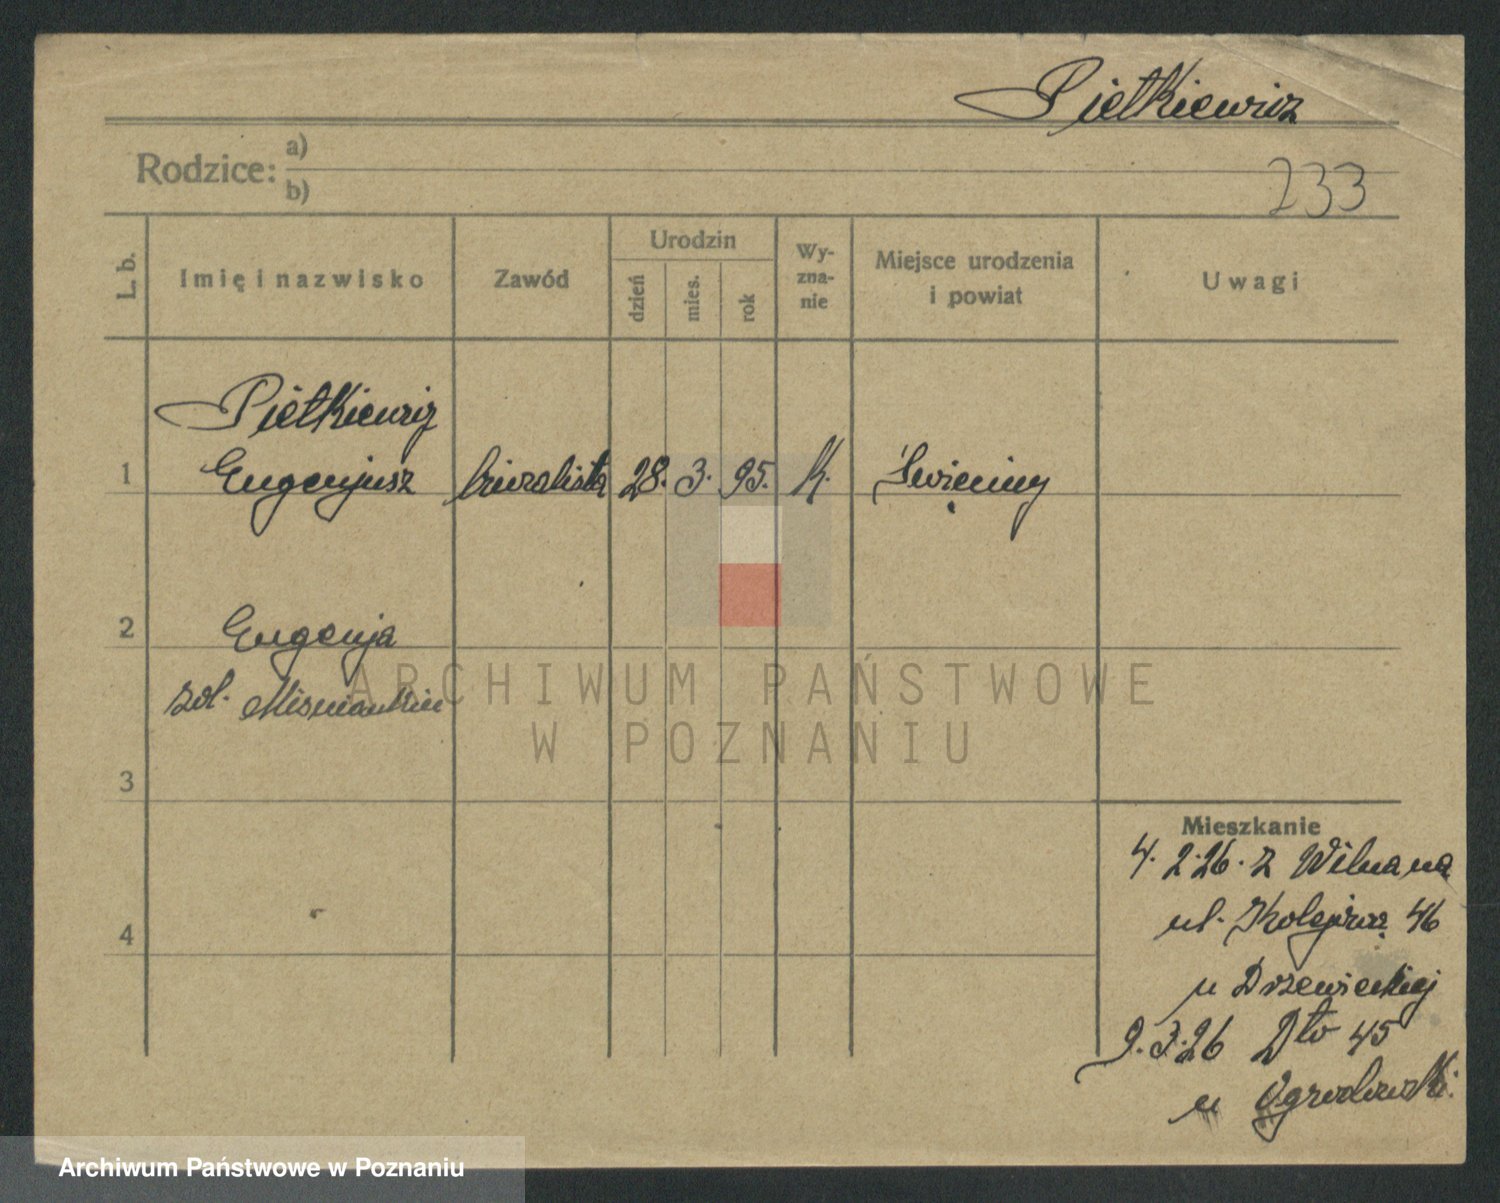 Pietkiewicz
Rodzice: a)
b)
233
L. b.
Imię i nazwisko
Zawód
Urodzin
dzień
mies.
rok
Wy-
zna-
nie
Miejsce urodzenia
i powiat
Uwagi
Pietkiewicz
1 Eugenjusz biuralista 28. 3. 95. K. Święciny
2 Eugenja
zol.
3
4
ARCHIWUM PAŃSTWOWE
W POZNANIU
Mieszkanie
4. 2. 26. z Wilna na
ul. Kolejowa 46
u Drzewieckiej
9. 3. 26 Dto 45
u Ogrodowski.
Archiwum Państwowe w Poznaniu